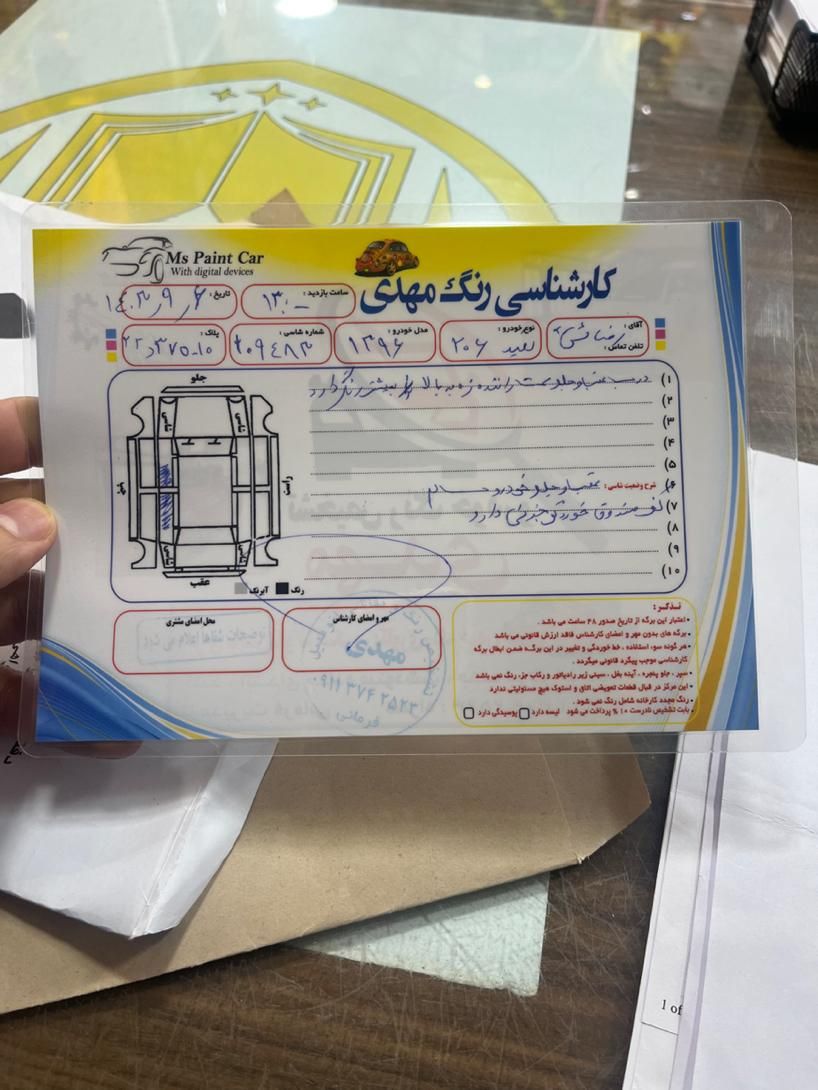 Ms Paint Car
With digital devices
کارشناسی رنگ مهدی
ساعت بازدید : ۱۳:۰۰
تاریخ : ۱۴۰۳/۹/۶
آقای :
تلفن تماس :
نوع خودرو : سفید ۲۰۶
مدل خودرو : ۱۳۹۶
شماره شاسی : ۲۰۹۴۸۳
پلاک :
جلو
راست
چپ
شاسی
شاسی
شاسی
شاسی
عقب
رنگ
آبرنگ
۱) درب عقب و جلو سمت راننده زه به بالا بیشتر رنگ دارد
۲)
۳)
۴)
۵)
۶) شرح وضعیت شاسی : عقب و جلو خودرو سالم
۷) کف صندوق خوردگی جزئی دارد
۸)
۹)
۱۰)
محل امضای مشتری
توضیحات شفاها اعلام می شود
مهر و امضای کارشناس
مهدی
۰۹۱۱ ۳۷۴ ۲۵۲۳
فرمانی
تذکر :
• اعتبار این برگه از تاریخ صدور ۴۸ ساعت می باشد .
• برگه های بدون مهر و امضای کارشناس فاقد ارزش قانونی می باشد
• هر گونه سوء استفاده ، خط خوردگی و تغییر در این برگه ضمن ابطال برگه
کارشناسی موجب پیگرد قانونی میگردد .
• سپر ، جلو پنجره ، آینه بغل ، سینی زیر رادیاتور و رکاب جز، رنگ نمی باشد
• این مرکز در قبال قطعات تعویضی اتاق و استوک هیچ مسئولیتی ندارد
• رنگ مجدد کارخانه شامل رنگ نمی شود .
• بابت تشخیص نادرست ۱۰ % پرداخت می شود لیسه دارد پوسیدگی دارد
1 of